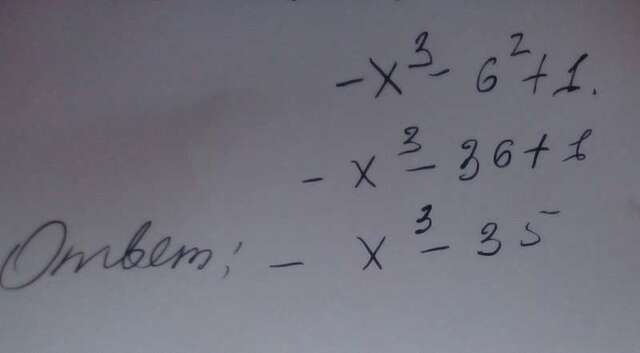 -x³- 6²+1.
- x³-36+1
Ответ: - x³-35